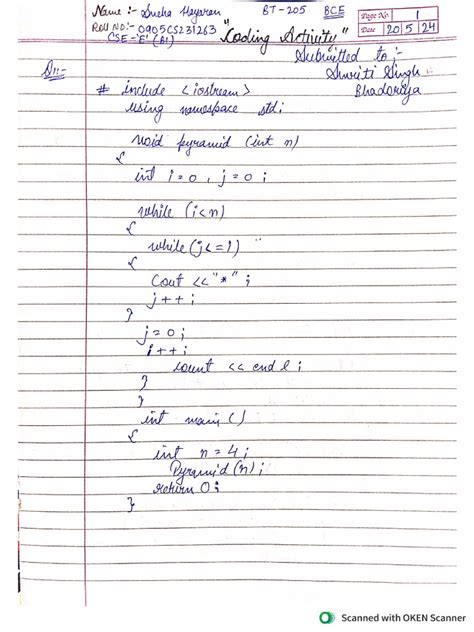 Name :- Sneha Hayaran BT-205 BCE Page No. 1
Roll No:- 0905CS231263 Date 20 5 24
CSE-'E' (B1) "Coding Activity"
Submitted to :-
Smriti Singh
Bhadoriya
# include <iostream>
using namespace std;
void pyramid (int n)
{
int i=0, j=0;
while (i<n)
{
while (j<=i)
{
Cout <<"*";
j++;
}
j=0;
i++;
count << endl;
}
}
int main()
{
int n=4;
Pyramid(n);
return 0;
}
Scanned with OKEN Scanner